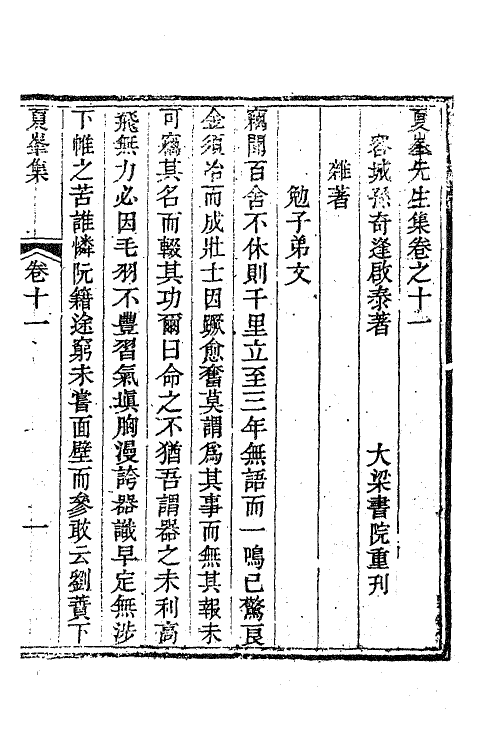 夏峯先生集卷之十一
容城孫奇逢啟泰著　大梁書院重刊
雜著
勉子弟文
竊聞百舍不休則千里立至三年無語而一鳴已驚良
金須冶而成壯士因蹶愈奮莫謂爲其事而無其報未
可竊其名而輟其功爾曰命之不猶吾謂器之未利高
飛無力必因毛羽不豐習氣塡胸漫誇器識早定無涉
下帷之苦誰憐阮籍途窮未嘗面壁而參敢云劉蕡下
夏峯集　卷十一　一